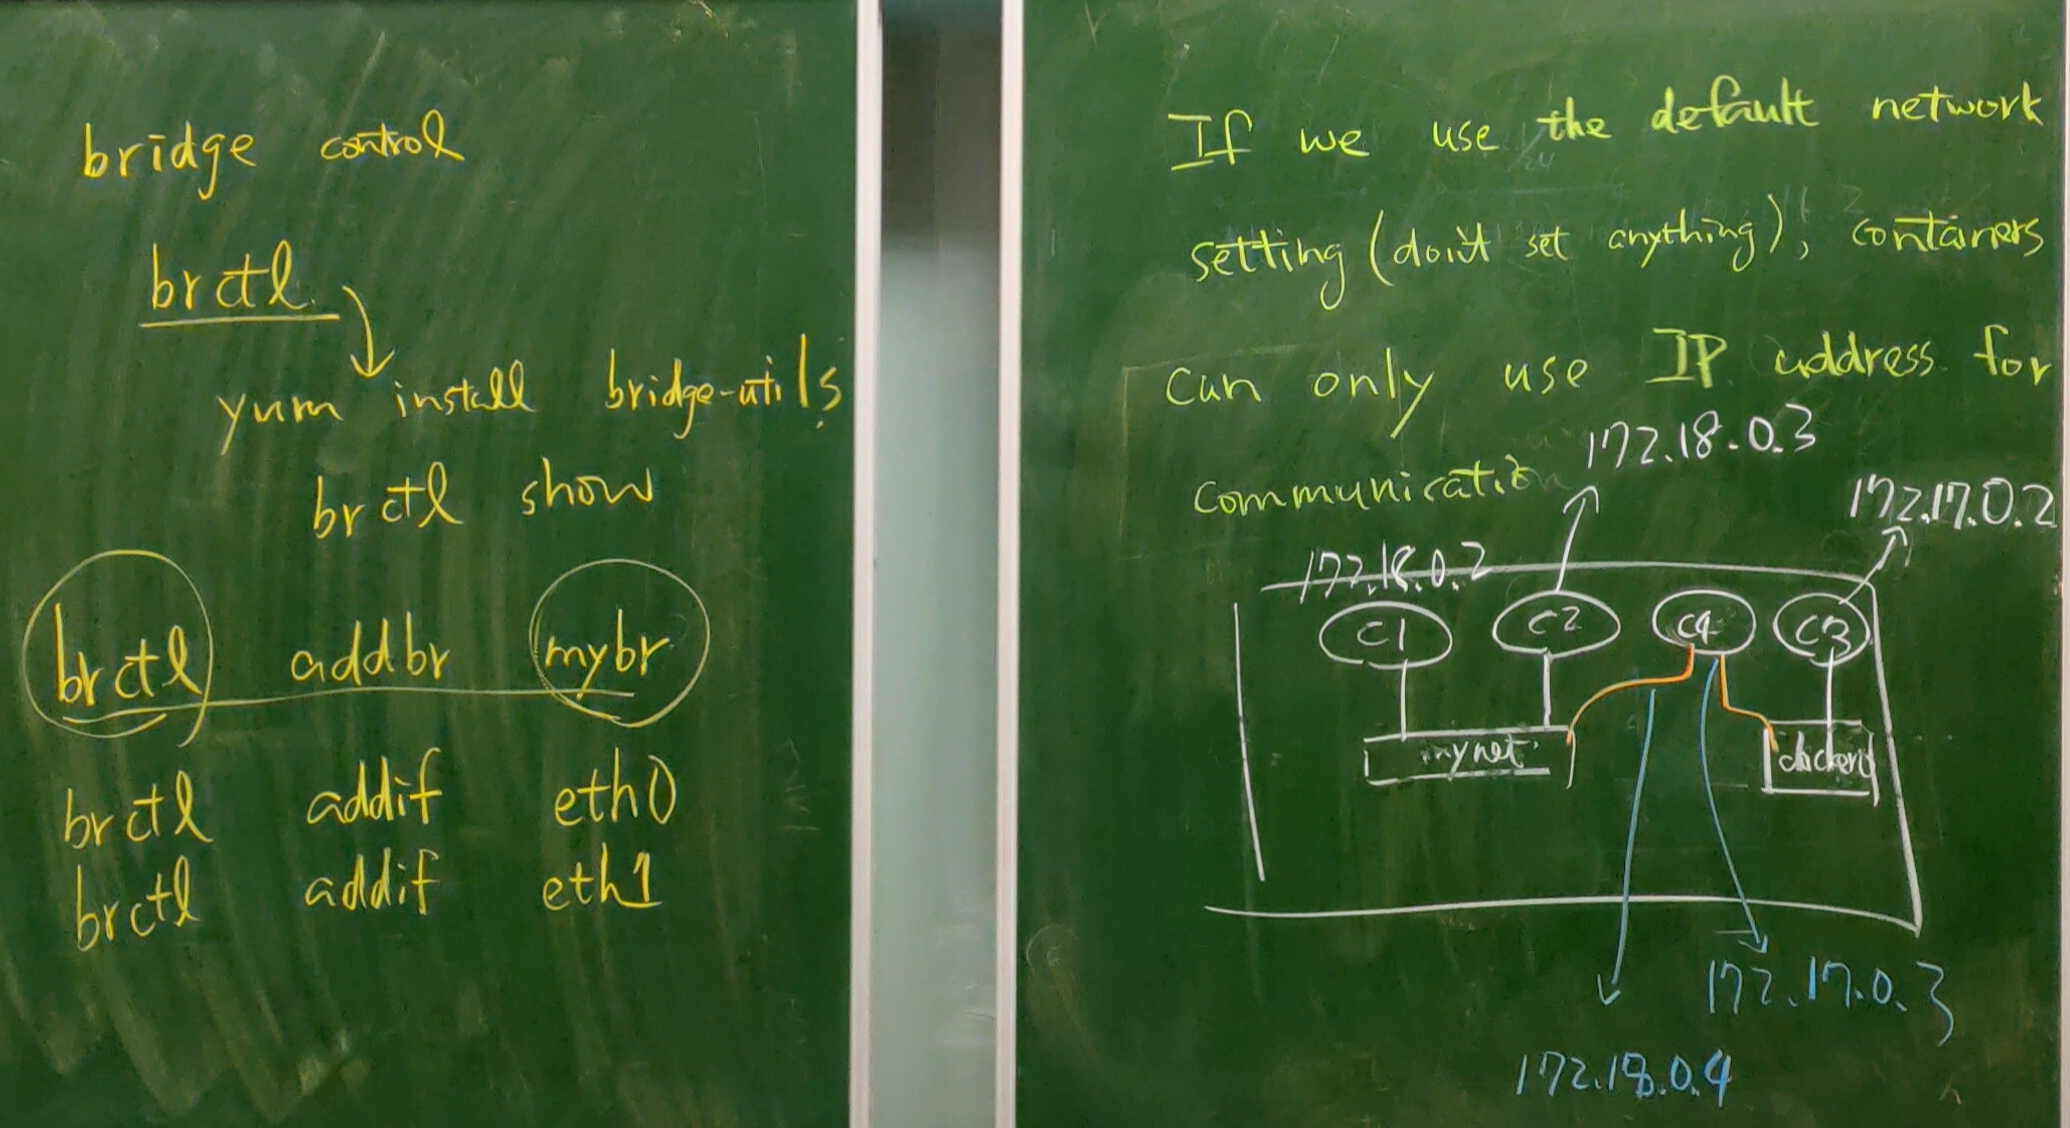 bridge control
brctl
yum install bridge-utils
brctl show
brctl addbr mybr
brctl addif eth0
brctl addif eth1
If we use the default network
setting (don't set anything), containers
can only use IP address for
communication
172.18.0.3
172.17.0.2
172.18.0.2
C1 C2 C4 C3
mynet docker0
172.17.0.3
172.18.0.4